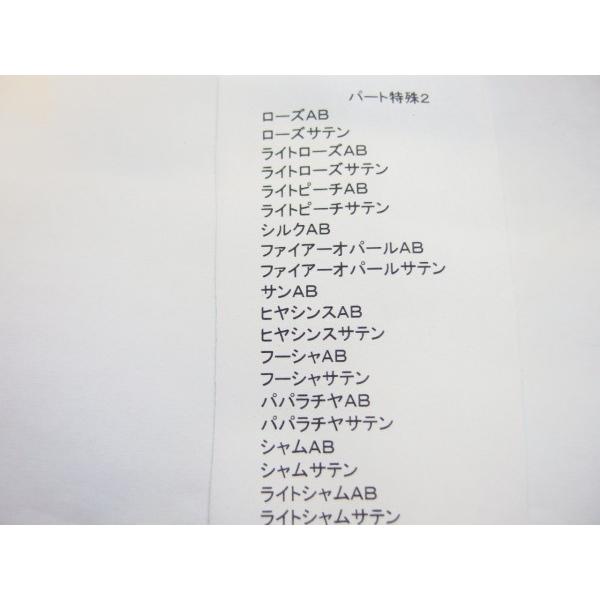 パート特殊2
ローズAB
ローズサテン
ライトローズAB
ライトローズサテン
ライトピーチAB
ライトピーチサテン
シルクAB
ファイアーオパールAB
ファイアーオパールサテン
サンAB
ヒヤシンスAB
ヒヤシンスサテン
フーシャAB
フーシャサテン
パパラチヤAB
パパラチヤサテン
シャムAB
シャムサテン
ライトシャムAB
ライトシャムサテン